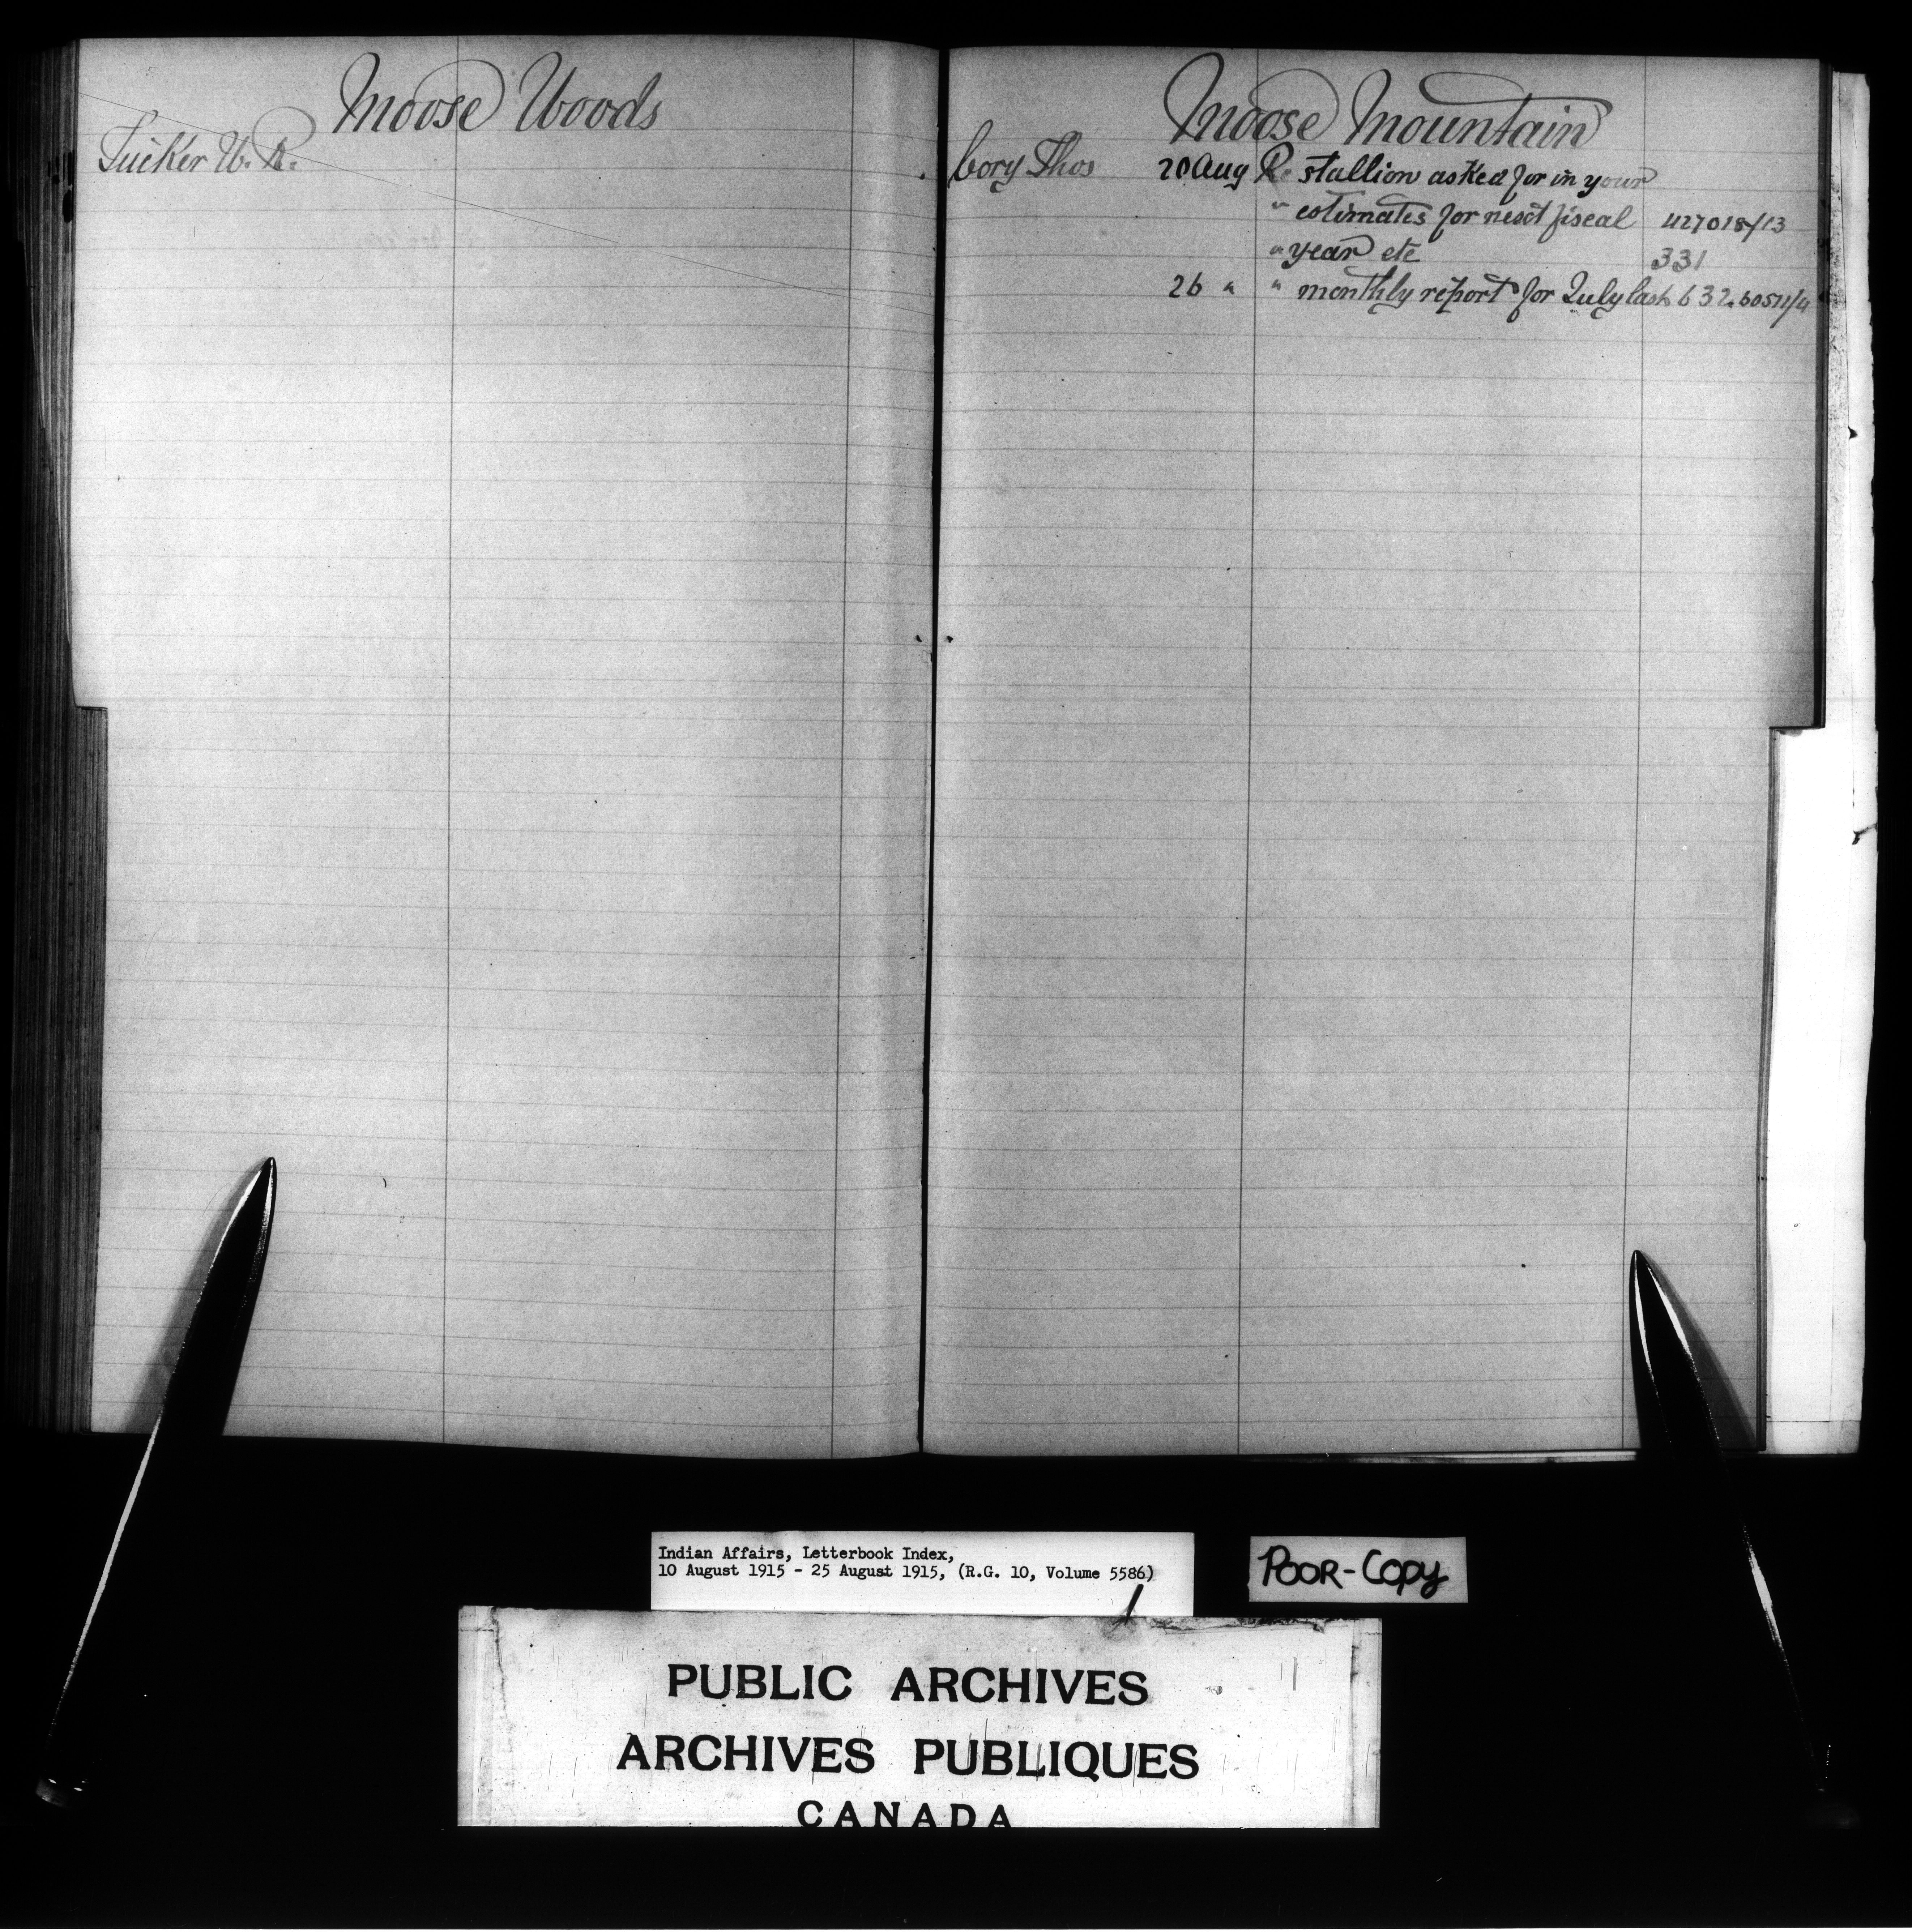 Moose Woods
Tucker W. R.
Moose Mountain
Cory Thos 20 Aug Re stallion asked for in your
" estimates for next fiscal 427018/13
" year etc 331
26 " " monthly report for July last 632.
Indian Affairs, Letterbook Index,
10 August 1915 - 25 August 1915, (R.G. 10, Volume 5586)
POOR-COPY
PUBLIC ARCHIVES
ARCHIVES PUBLIQUES
CANADA